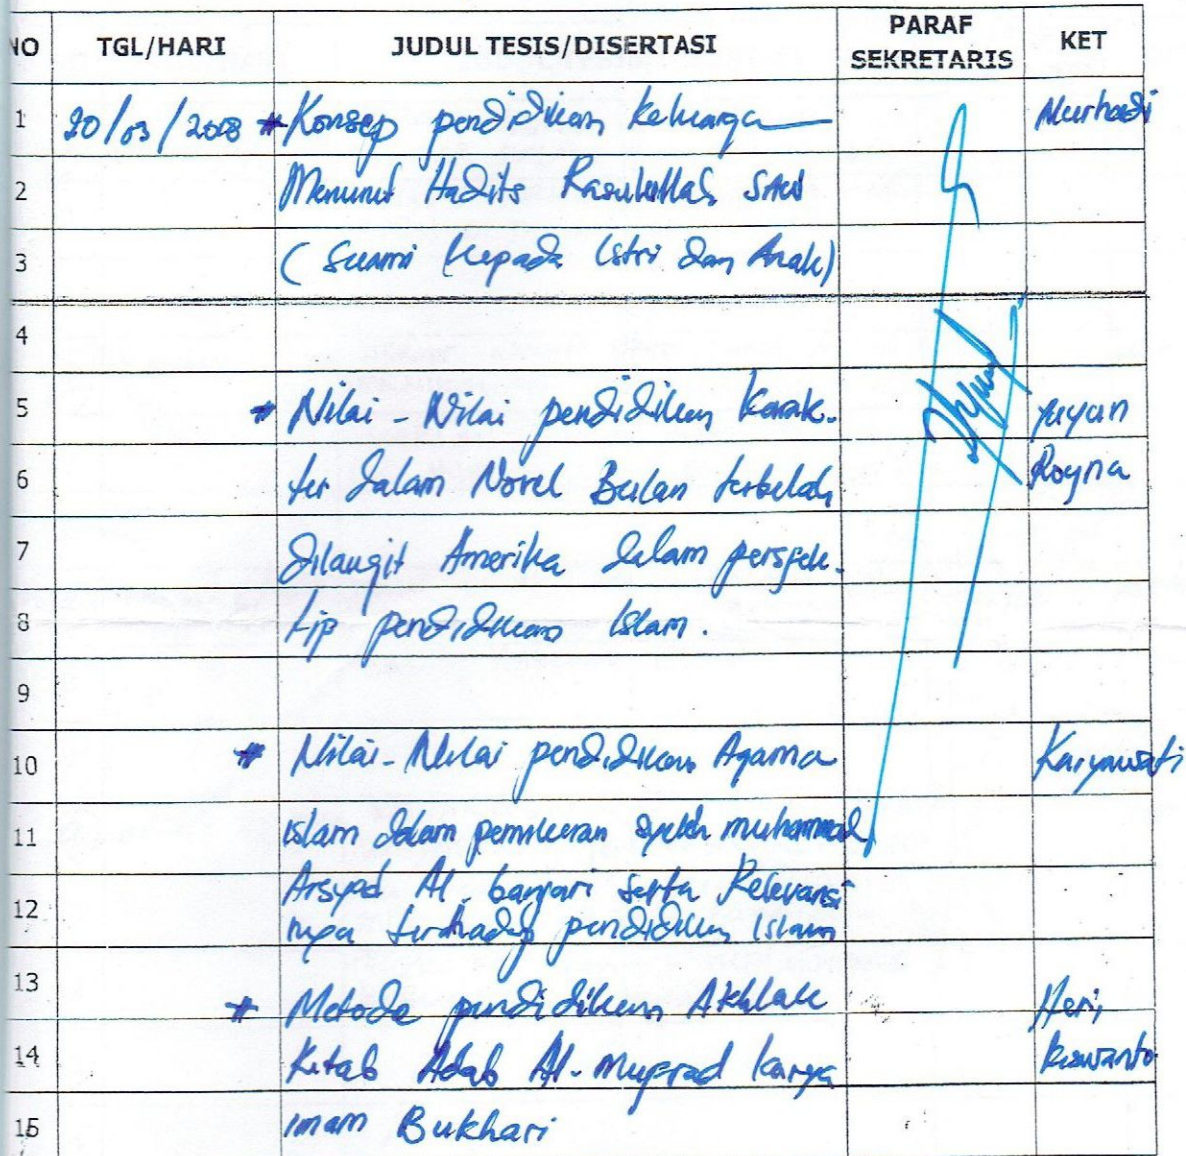 NO TGL/HARI JUDUL TESIS/DISERTASI PARAF SEKRETARIS KET
1 /03/2018 # Konsep pendidikan keluarga Nurhadi
2 Menurut Hadits Rasulullah SAW
3 (Suami kepada Istri dan Anak)
4
5 # Nilai-Nilai pendidikan Karak- yuyun
6 ter dalam Novel Bulan terbelah Royna
7 dilangit Amerika dalam perspek-
8 tip pendidikan Islam.
9
10 # Nilai-Nilai pendidikan Agama Karyawati
11 islam dalam pemikiran syekh muhammad
12 Arsyad Al-banjari serta Relevansi
nya terhadap pendidikan Islam
13 # Metode pendidikan Akhlak Heri
14 Kitab Adab Al-Muprad karya
15 imam Bukhari